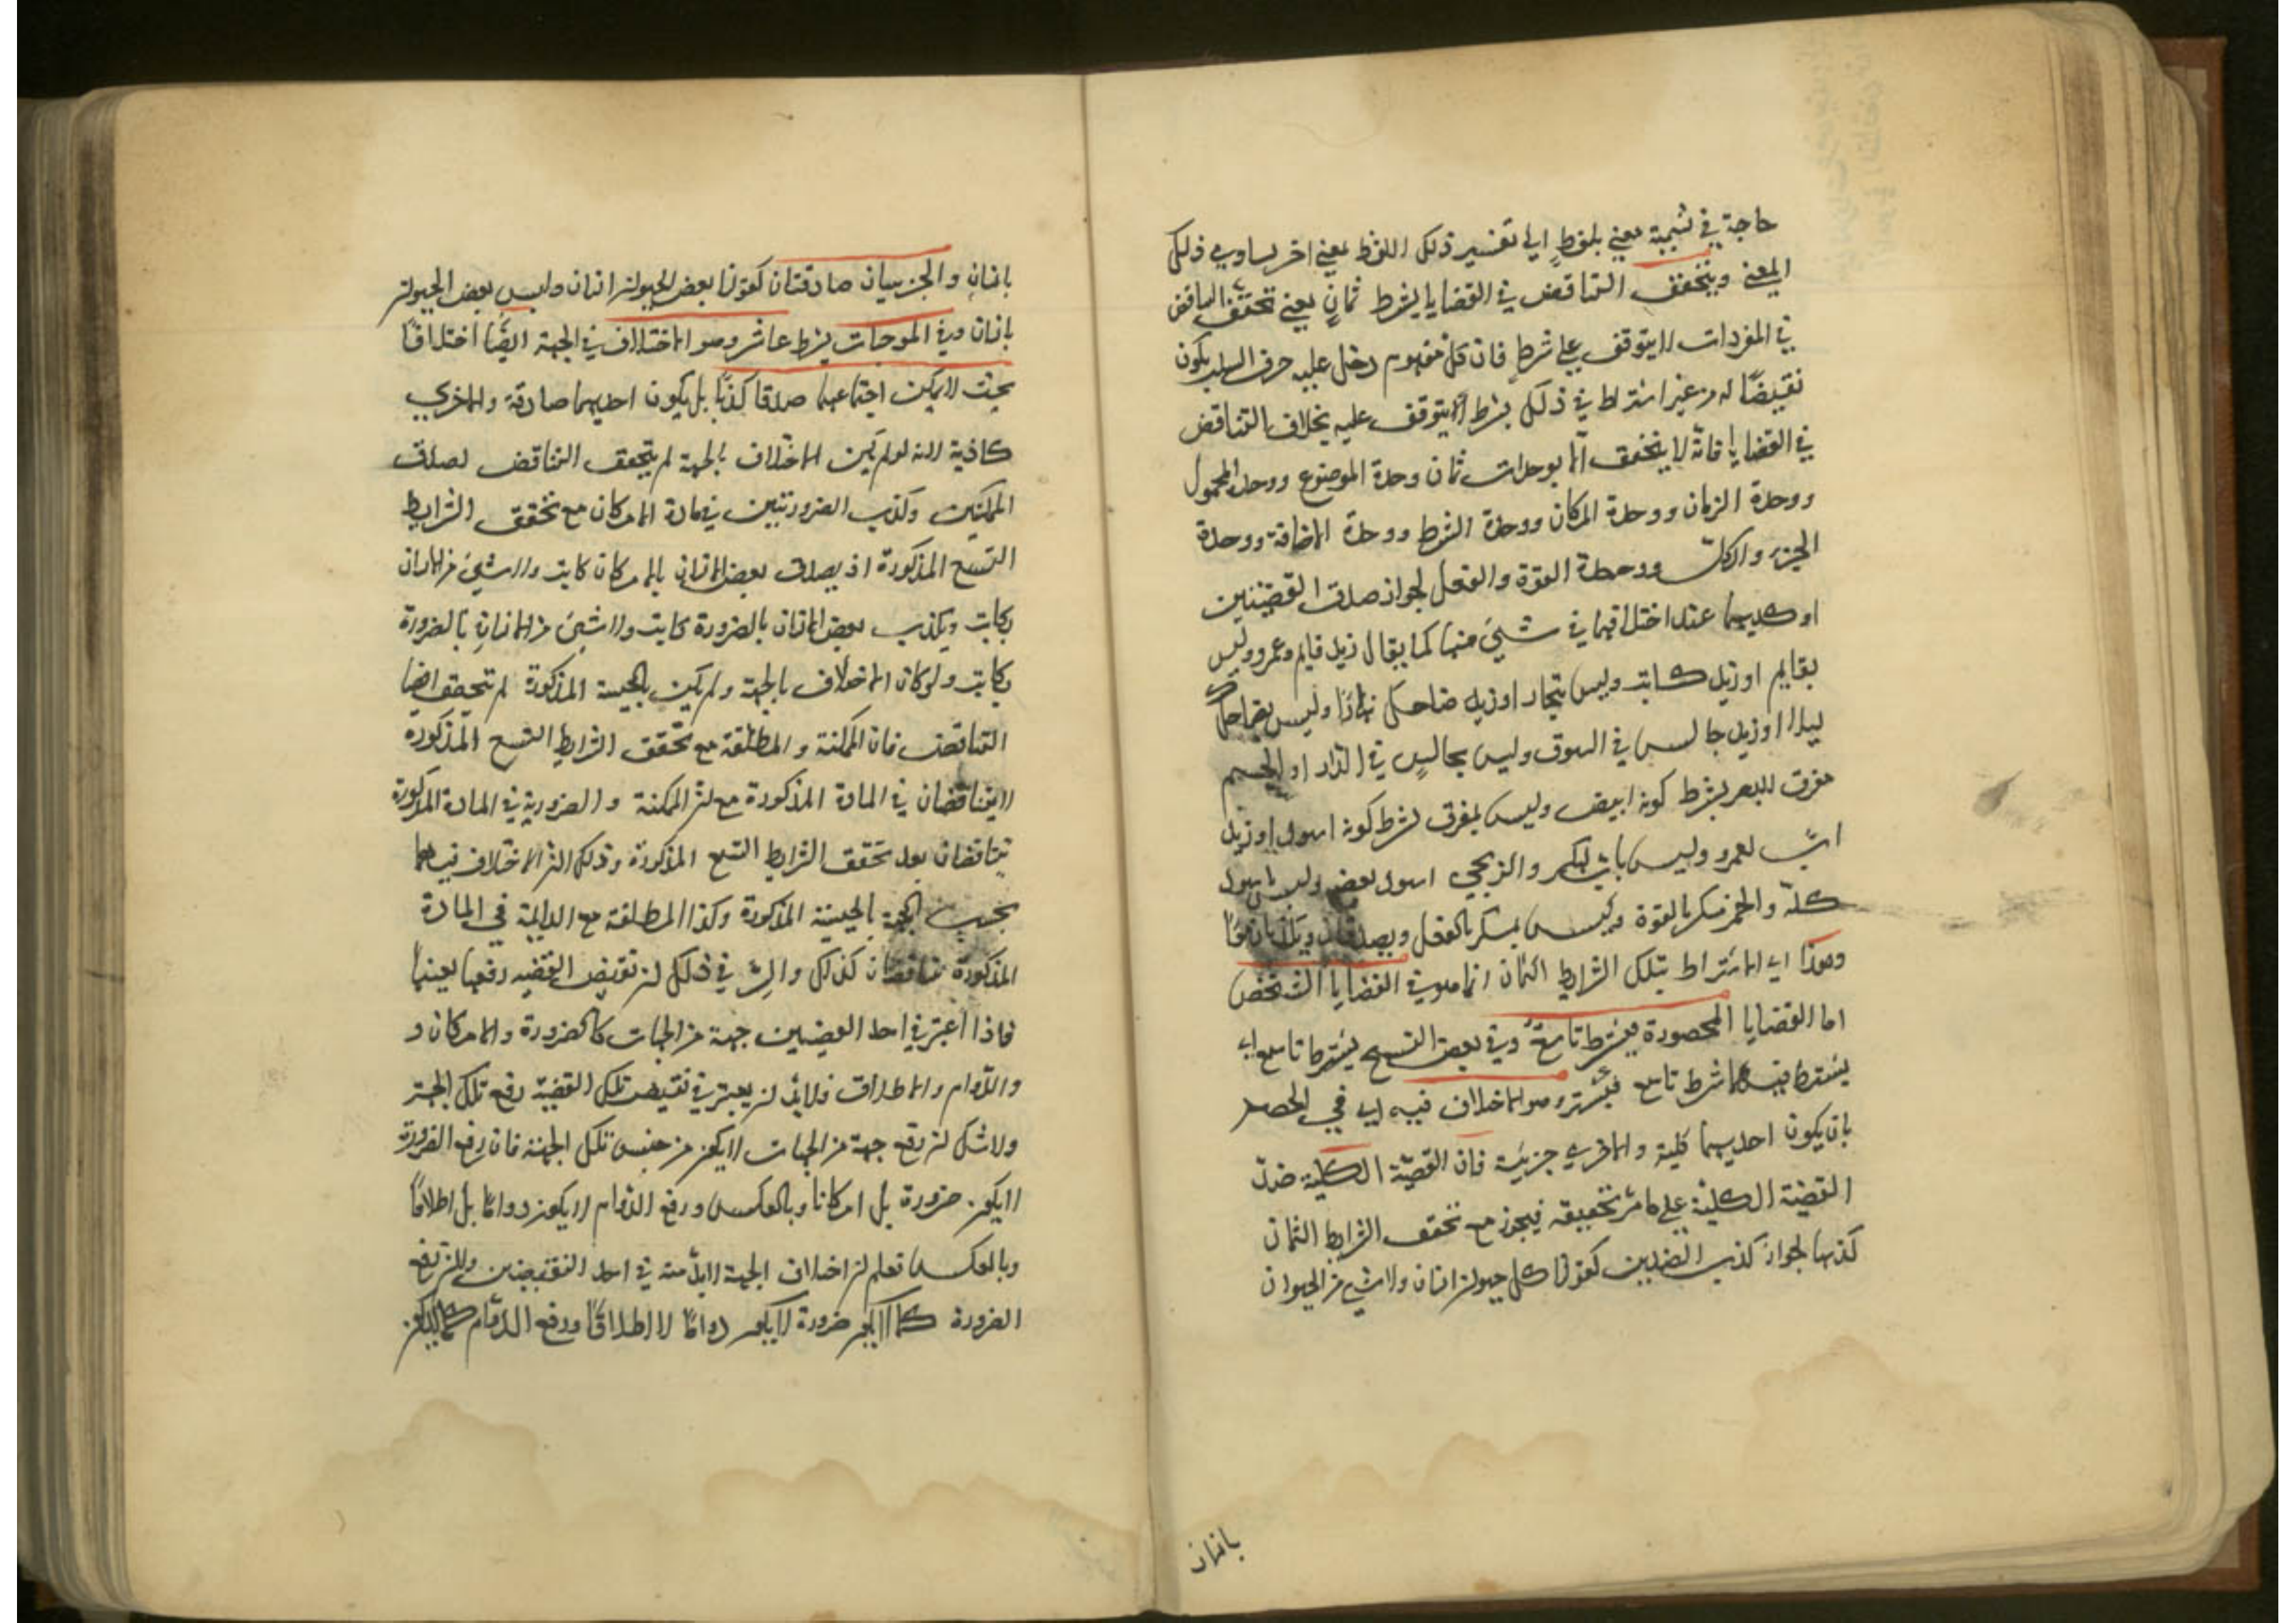 حاجة في تسمية معنى بلفظ الى تفسير ذلك اللفظ بمعنى اخر يساوي ذلك
المعنى ويتحقق التناقض في القضايا بشرط ثمان يعني تحقق التناقض
في المفردات لا يتوقف على شرط فان كل مفهوم دخل عليه حرف السلب يكون
نقيضًا له من غير اشتراط في ذلك بشرط لا يتوقف عليه بخلاف التناقض
في القضايا فانه لا يتحقق الا بوحدات ثمان وحدة الموضوع ووحدة المحمول
ووحدة الزمان ووحدة المكان ووحدة الشرط ووحدة الاضافة ووحدة
الجزء والكل ووحدة القوة والفعل لجواز صدق القضيتين
او كذبهما عند اختلافهما في شيء منها كما يقال زيد قايم وعمرو ليس
بقايم او زيد كاتب وليس بنجار او زيد ضاحك نهارًا وليس بضاحك
ليلا او زيد جالس في السوق وليس بجالس في الدار او الجسم
مفرق للبصر بشرط كونه ابيض وليس بمفرق بشرط كونه اسود او زيد
اب لعمرو وليس باب لبكر والزنجي اسود بعضه وليس باسود
كله والخمر مسكر بالقوة وليس بمسكر بالفعل ويصدقان
وهذا اي الاشتراط بتلك الشرايط الثمان انما هو في القضايا الشخص
اما القضايا المحصورة فبشرط تاسع وفي بعض النسخ يشترط تاسع اي
يشترط فيها شرط تاسع وهو الاختلاف فيه اي في الحصر
بان يكون احديهما كلية والاخرى جزئية فان القضية الكلية ضد
القضية الكلية على ما مر تحقيقه فيجوز مع تحقق الشرايط الثمان
كذبهما لجواز كذب الضدين كقولنا كل حيوان انسان ولا شيء من الحيوان
بانسان
بانسان والجزييان صادقتان كقولنا بعض الحيوان انسان وليس بعض الحيوان
بانسان وفي الموجهات بشرط عاشر وهو الاختلاف في الجهة ايضًا اختلافًا
بحيث لا يمكن اجتماعهما صدقا كذبًا بل يكون احديهما صادقة والاخرى
كاذبة لانه لو لم يكن الاختلاف بالجهة لم يتحقق التناقض لصدق
الممكنتين وكذب الضروريتين في مادة الامكان مع تحقق الشرايط
التسع المذكورة اذ يصدق بعض الانسان بالامكان كاتب ولا شيء من الانسان
بكاتب ويكذب بعض الانسان بالضرورة كاتب ولا شيء من الانسان بالضرورة
بكاتب ولو كان الاختلاف بالجهة ولم يكن بالحيثية المذكورة لم يتحقق ايضا
التناقض فان الممكنة والمطلقة مع تحقق الشرايط التسع المذكورة
لا يتناقضان في المادة المذكورة مع ان الممكنة والضرورية في المادة المذكورة
تتناقضان بعد تحقق الشرايط التسع المذكورة وذلك لان الاختلاف فيهما
بحسب الجهة بالحيثية المذكورة وكذا المطلقة مع الدايمة في المادة
المذكورة تتناقضان كذلك والسر في ذلك ان نقيض القضية رفعها بعينها
فاذا اعتبر في احد القضيتين جهة من الجهات كالضرورة والامكان و
والدوام والاطلاق فلابد ان يعتبر في نقيض تلك القضية رفع تلك الجهة
ولا شك ان رفع جهة من الجهات لا يكون من جنس تلك الجهة فان رفع الضرورة
لا يكون ضرورة بل امكانا وبالعكس ورفع الدوام لا يكون دوامًا بل اطلاقًا
وبالعكس تعلم ان اختلاف الجهة لابد منه في احد النقيضين ولان رفع
الضرورة كما لا يكون ضرورة لا يكون دوامًا لا اطلاقًا ورفع الدوام كما لا يكون